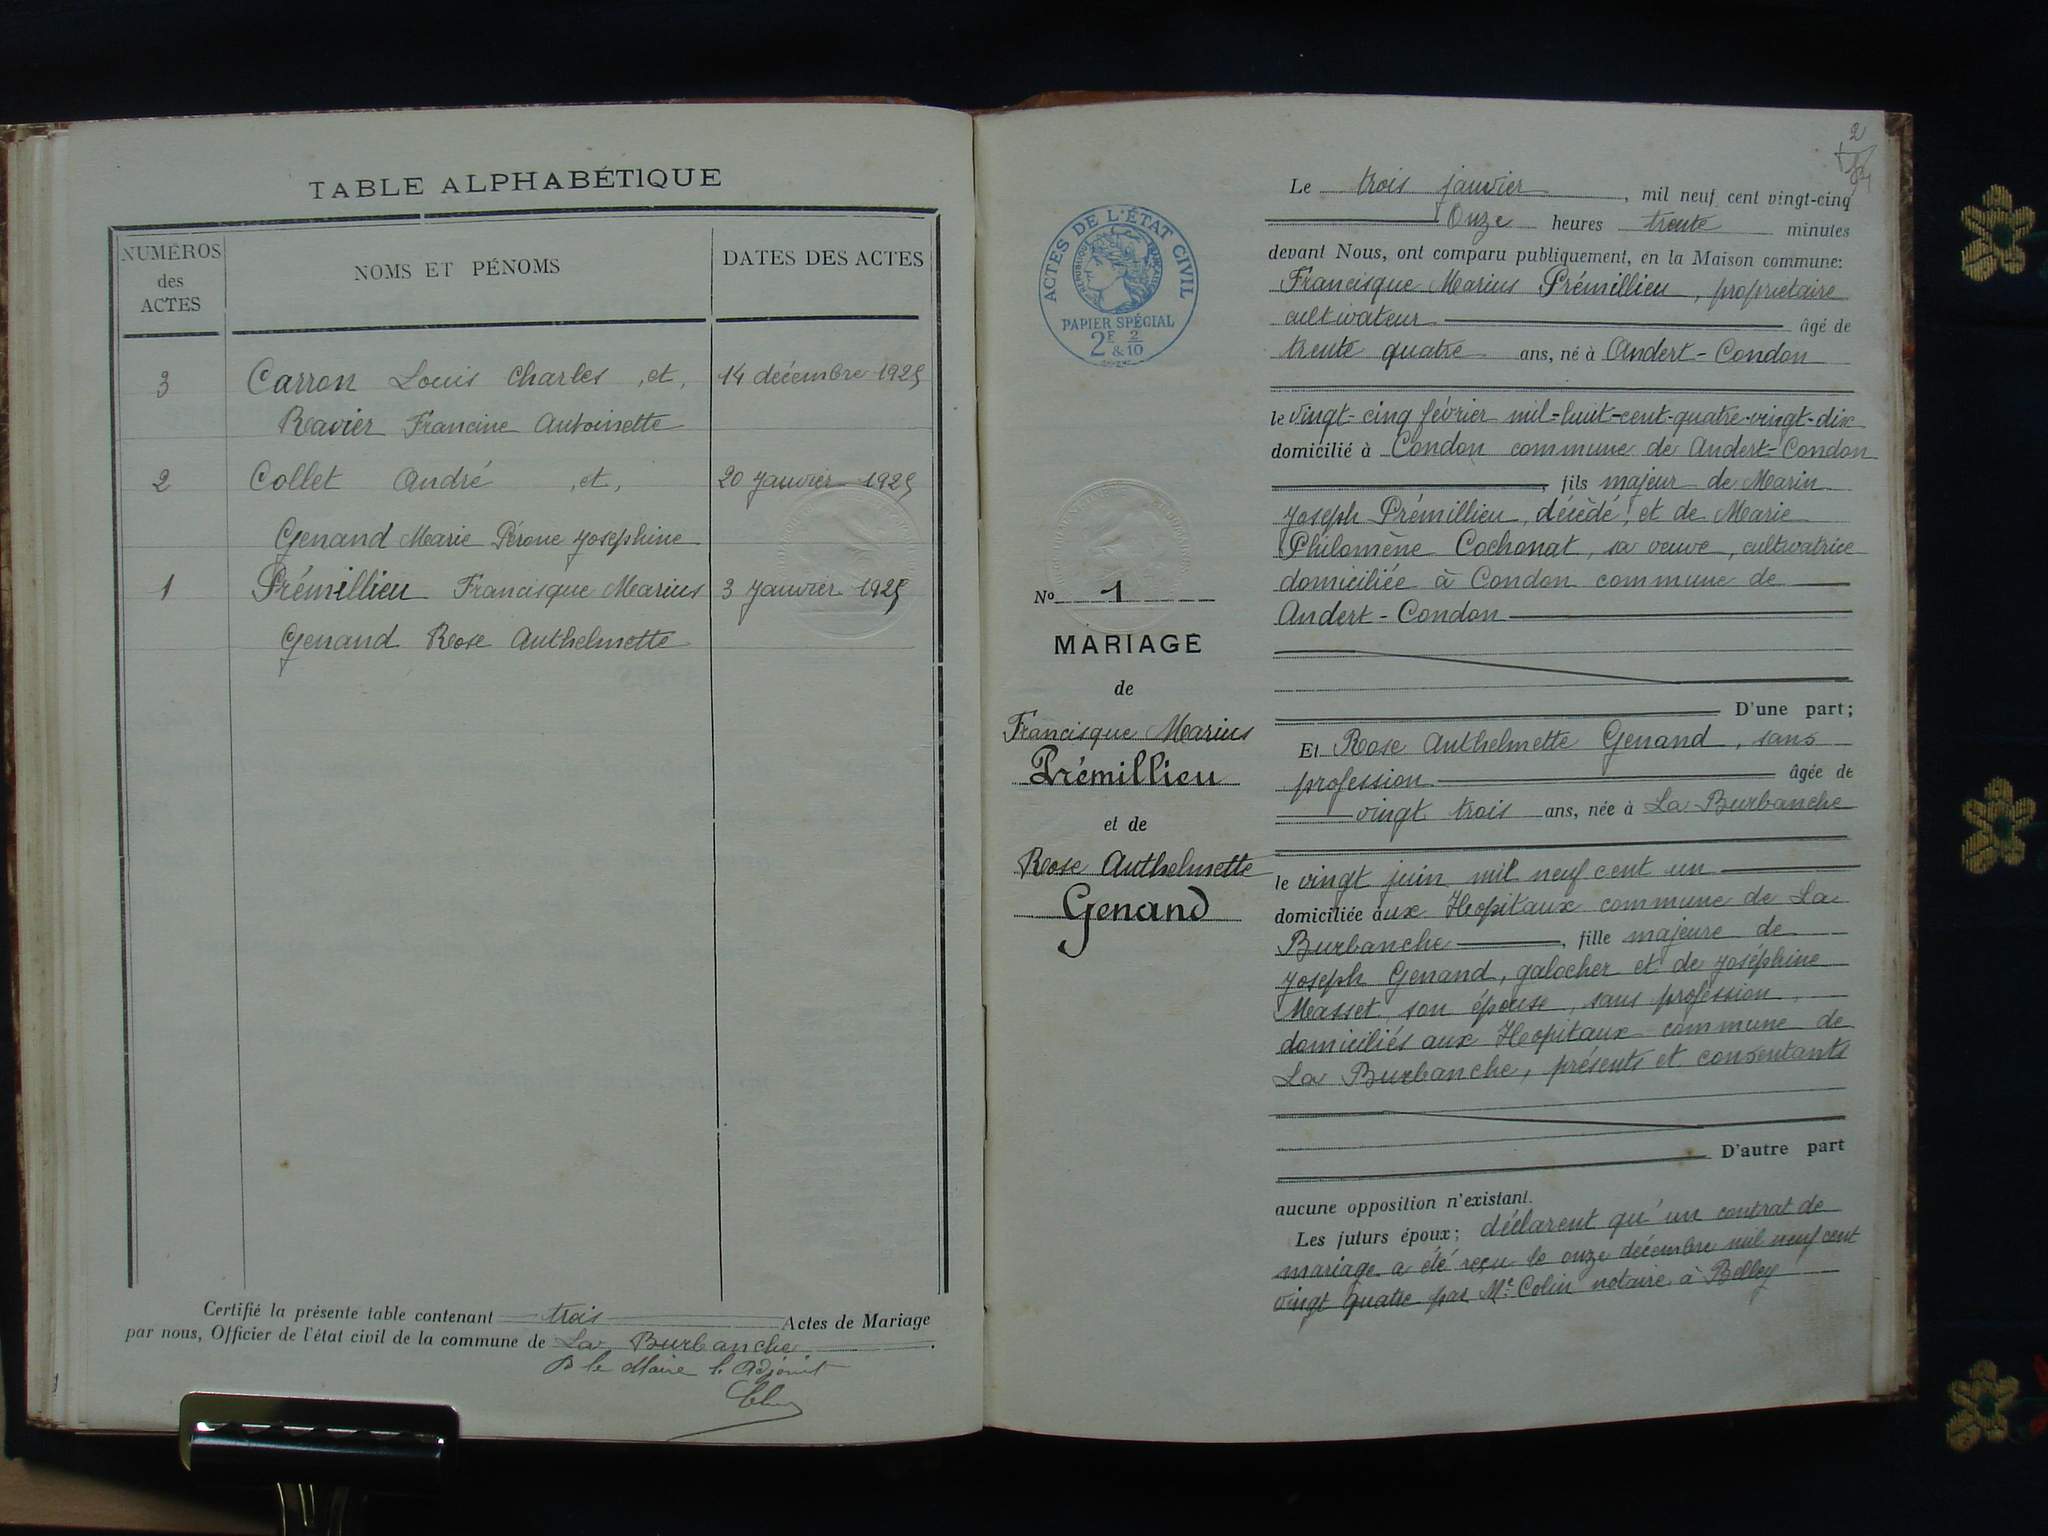 TABLE ALPHABÉTIQUE
NUMÉROS
des
ACTES
NOMS ET PÉNOMS
DATES DES ACTES
3 Carron Louis Charles, et, 14 décembre 1925
Ravier Francine Antoinette
2 Collet André, et, 20 Janvier 1925
Genand Marie Pérone Joséphine
1 Prémillieu Francisque Marius 3 Janvier 1925
Genand Rose Anthelmette
Certifié la présente table contenant trois Actes de Mariage
par nous, Officier de l'état civil de la commune de La Burbanche.
P le Maire l'Adjoint
2
ACTES DE L'ÉTAT CIVIL
RÉPUBLIQUE FRANÇAISE
PAPIER SPÉCIAL
2F & 2/10
No 1
MARIAGE
de
Francisque Marius
Prémillieu
et de
Rose Anthelmette
Genand
Le trois janvier, mil neuf cent vingt-cinq
Onze heures trente minutes
devant Nous, ont comparu publiquement, en la Maison commune:
Francisque Marius Prémillieu, propriétaire
cultivateur âgé de
trente quatre ans, né à Andert-Condon
le vingt-cinq février mil-huit-cent-quatre-vingt-dix
domicilié à Condon commune de Andert-Condon
, fils majeur de Marin
Joseph Prémillieu, décédé, et de Marie
Philomène Cochonat, sa veuve, cultivatrice
domiciliée à Condon commune de
Andert-Condon
D'une part;
Et Rose Anthelmette Genand, sans
profession âgée de
vingt trois ans, née à La Burbanche
le vingt juin mil neuf cent un
domiciliée aux Hopitaux commune de La
Burbanche, fille majeure de
Joseph Genand, galocher et de Joséphine
Masset, son épouse, sans profession,
domiciliés aux Hopitaux commune de
La Burbanche, présents et consentants
D'autre part
aucune opposition n'existant.
Les futurs époux; déclarent qu'un contrat de
mariage a été reçu le onze décembre mil neuf cent
vingt quatre par Me Colin notaire à Belley